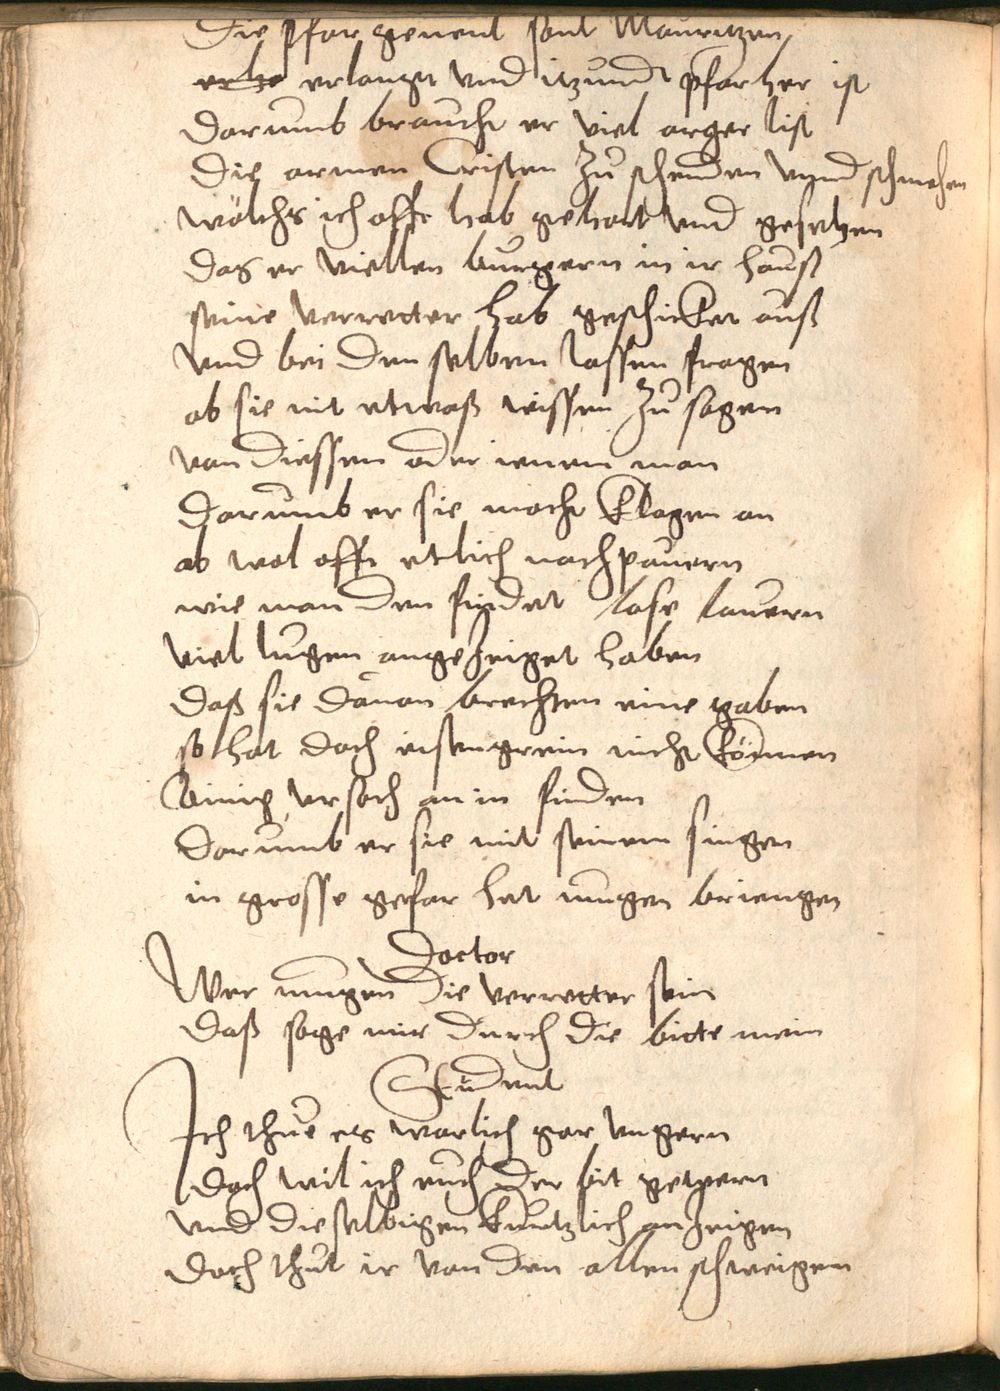 Die pfar genent sant Mauritzen
erlanget vnd itzundt pfarher ist
Darumb braucht er viel arger list
Die armen Cristen zu schenden vnnd schmehen
wölchs ich offt hab gehort vnd gesehen
das er viellen burgern in ir hauß
seine verretter hab geschicket auß
vnd bei den selben lassen fragen
ob sie nit etwaß wissen zu sagen
von diessen oder ienem man
Darumb er sie mocht klagen an
ob wol offt etlich nachpauern
wie man den findet lose lauern
viel lugen angezeiget haben
Daß sie dauon brechten eine gaben
so hat doch eisengrein nicht können
Einig vrsach an in finden
Darumb er sie mit seinem singen
in grosse gefar het mugen briengen
Doctor
Wer mugen die verretter sein
Daß sage mir durch die bitte mein
Student
Ich thue es warlich gar vngern
Doch wil ich euch der bit gewern
vnd dieselbigen kurtzlich anzeigen
Doch thut ir von den allen schweigen